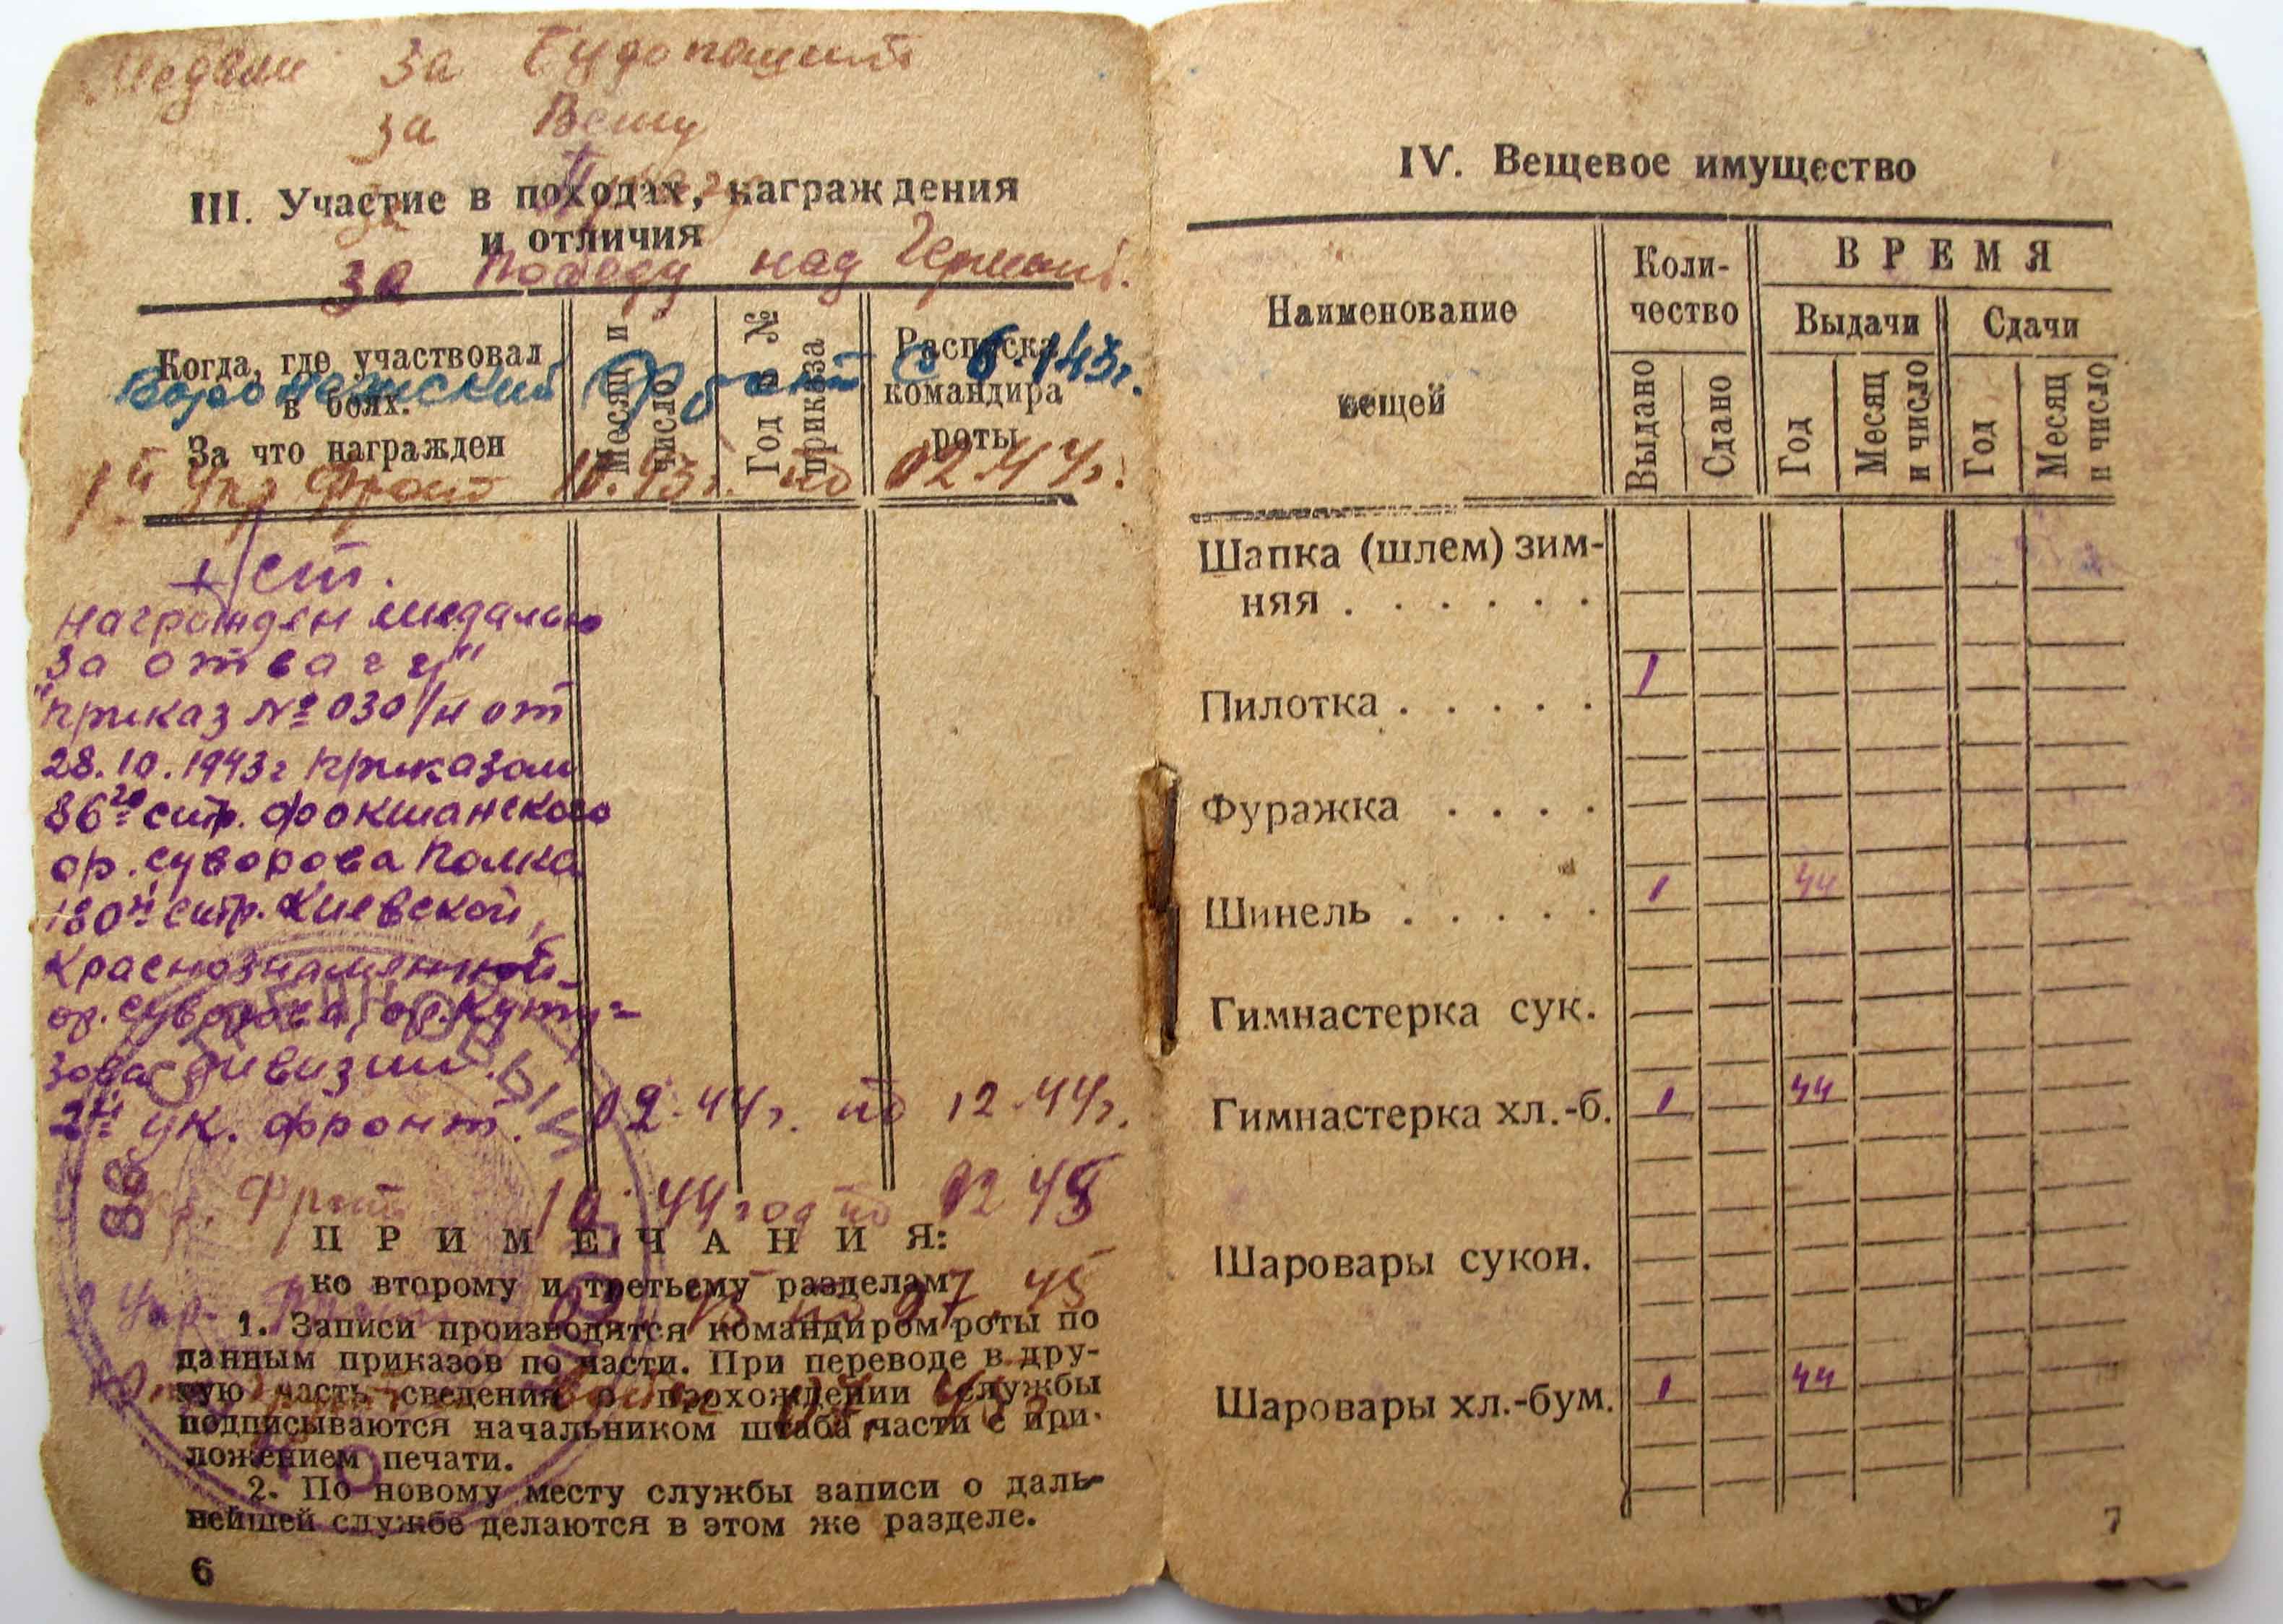 Медали за Будопашит
за Вену
за Прагу
III. Участие в походах, награждения
и отличия
за победу над Герман.
Когда, где участвовал
в боях.
За что награжден
Месяц и
число
Год и №
приказа
Расписка
командира
роты
Воронежский Фронт с 6.43г.
1й Укр Фронт 10.43г. по 02.44г.
награжден медалью
за отвагу"
"приказ № 030/н от
28.10.1943г приказом
86го стр. Фокшанского
ор. Суворова полка
180й стр. Киевской,
Краснознаменной
ор. Суворова, ор. Куту=
зова дивизии.
2й ук. фронт. 02.44г. по 12.44г.
Фронт 10 44 год по 02 45
ПРИМЕЧАНИЯ:
ко второму и третьему разделам
Укр. 45 по 07. 45
1. Записи производятся командиром роты по
данным приказов по части. При переводе в дру-
гую часть сведения о прохождении службы
подписываются начальником штаба части с при-
ложением печати.
2. По новому месту службы записи о даль-
нейшей службе делаются в этом же разделе.
6
IV. Вещевое имущество
Наименование
вещей
Коли-
чество
ВРЕМЯ
Выдачи
Сдачи
Выдано
Сдано
Год
Месяц
и число
Год
Месяц
и число
Шапка (шлем) зим-
няя . . . . . .
Пилотка . . . . . 1
Фуражка . . . .
Шинель . . . . . 1 44
Гимнастерка сук.
Гимнастерка хл.-б. 1 44
Шаровары сукон.
Шаровары хл.-бум. 1 44
7